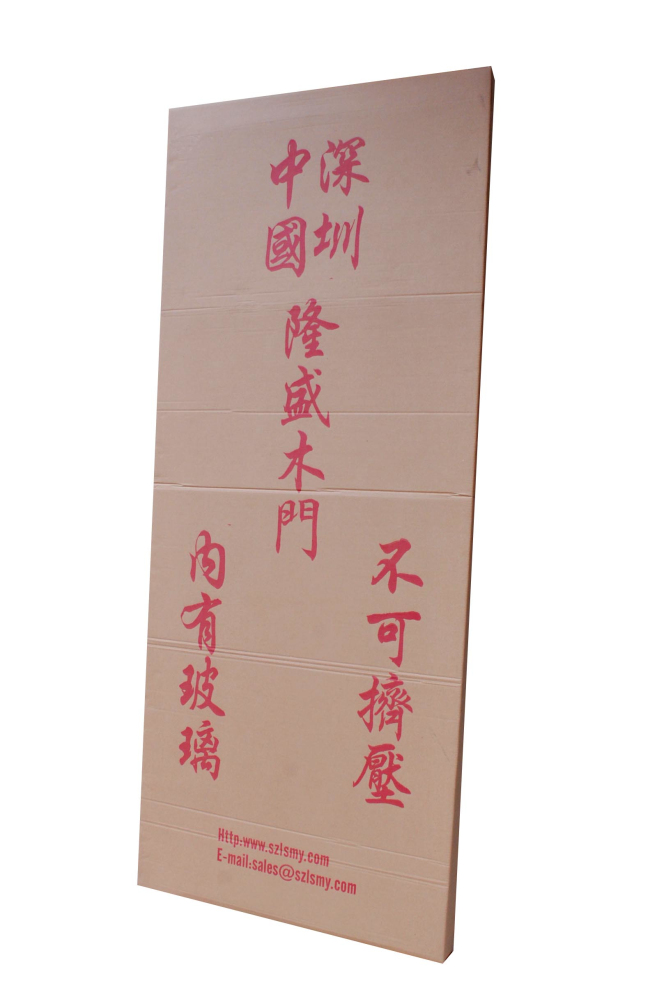 中國
深圳
隆盛木門
内有玻璃
不可擠壓
Http:www.szlsmy.com
E-mail:sales@szlsmy.com